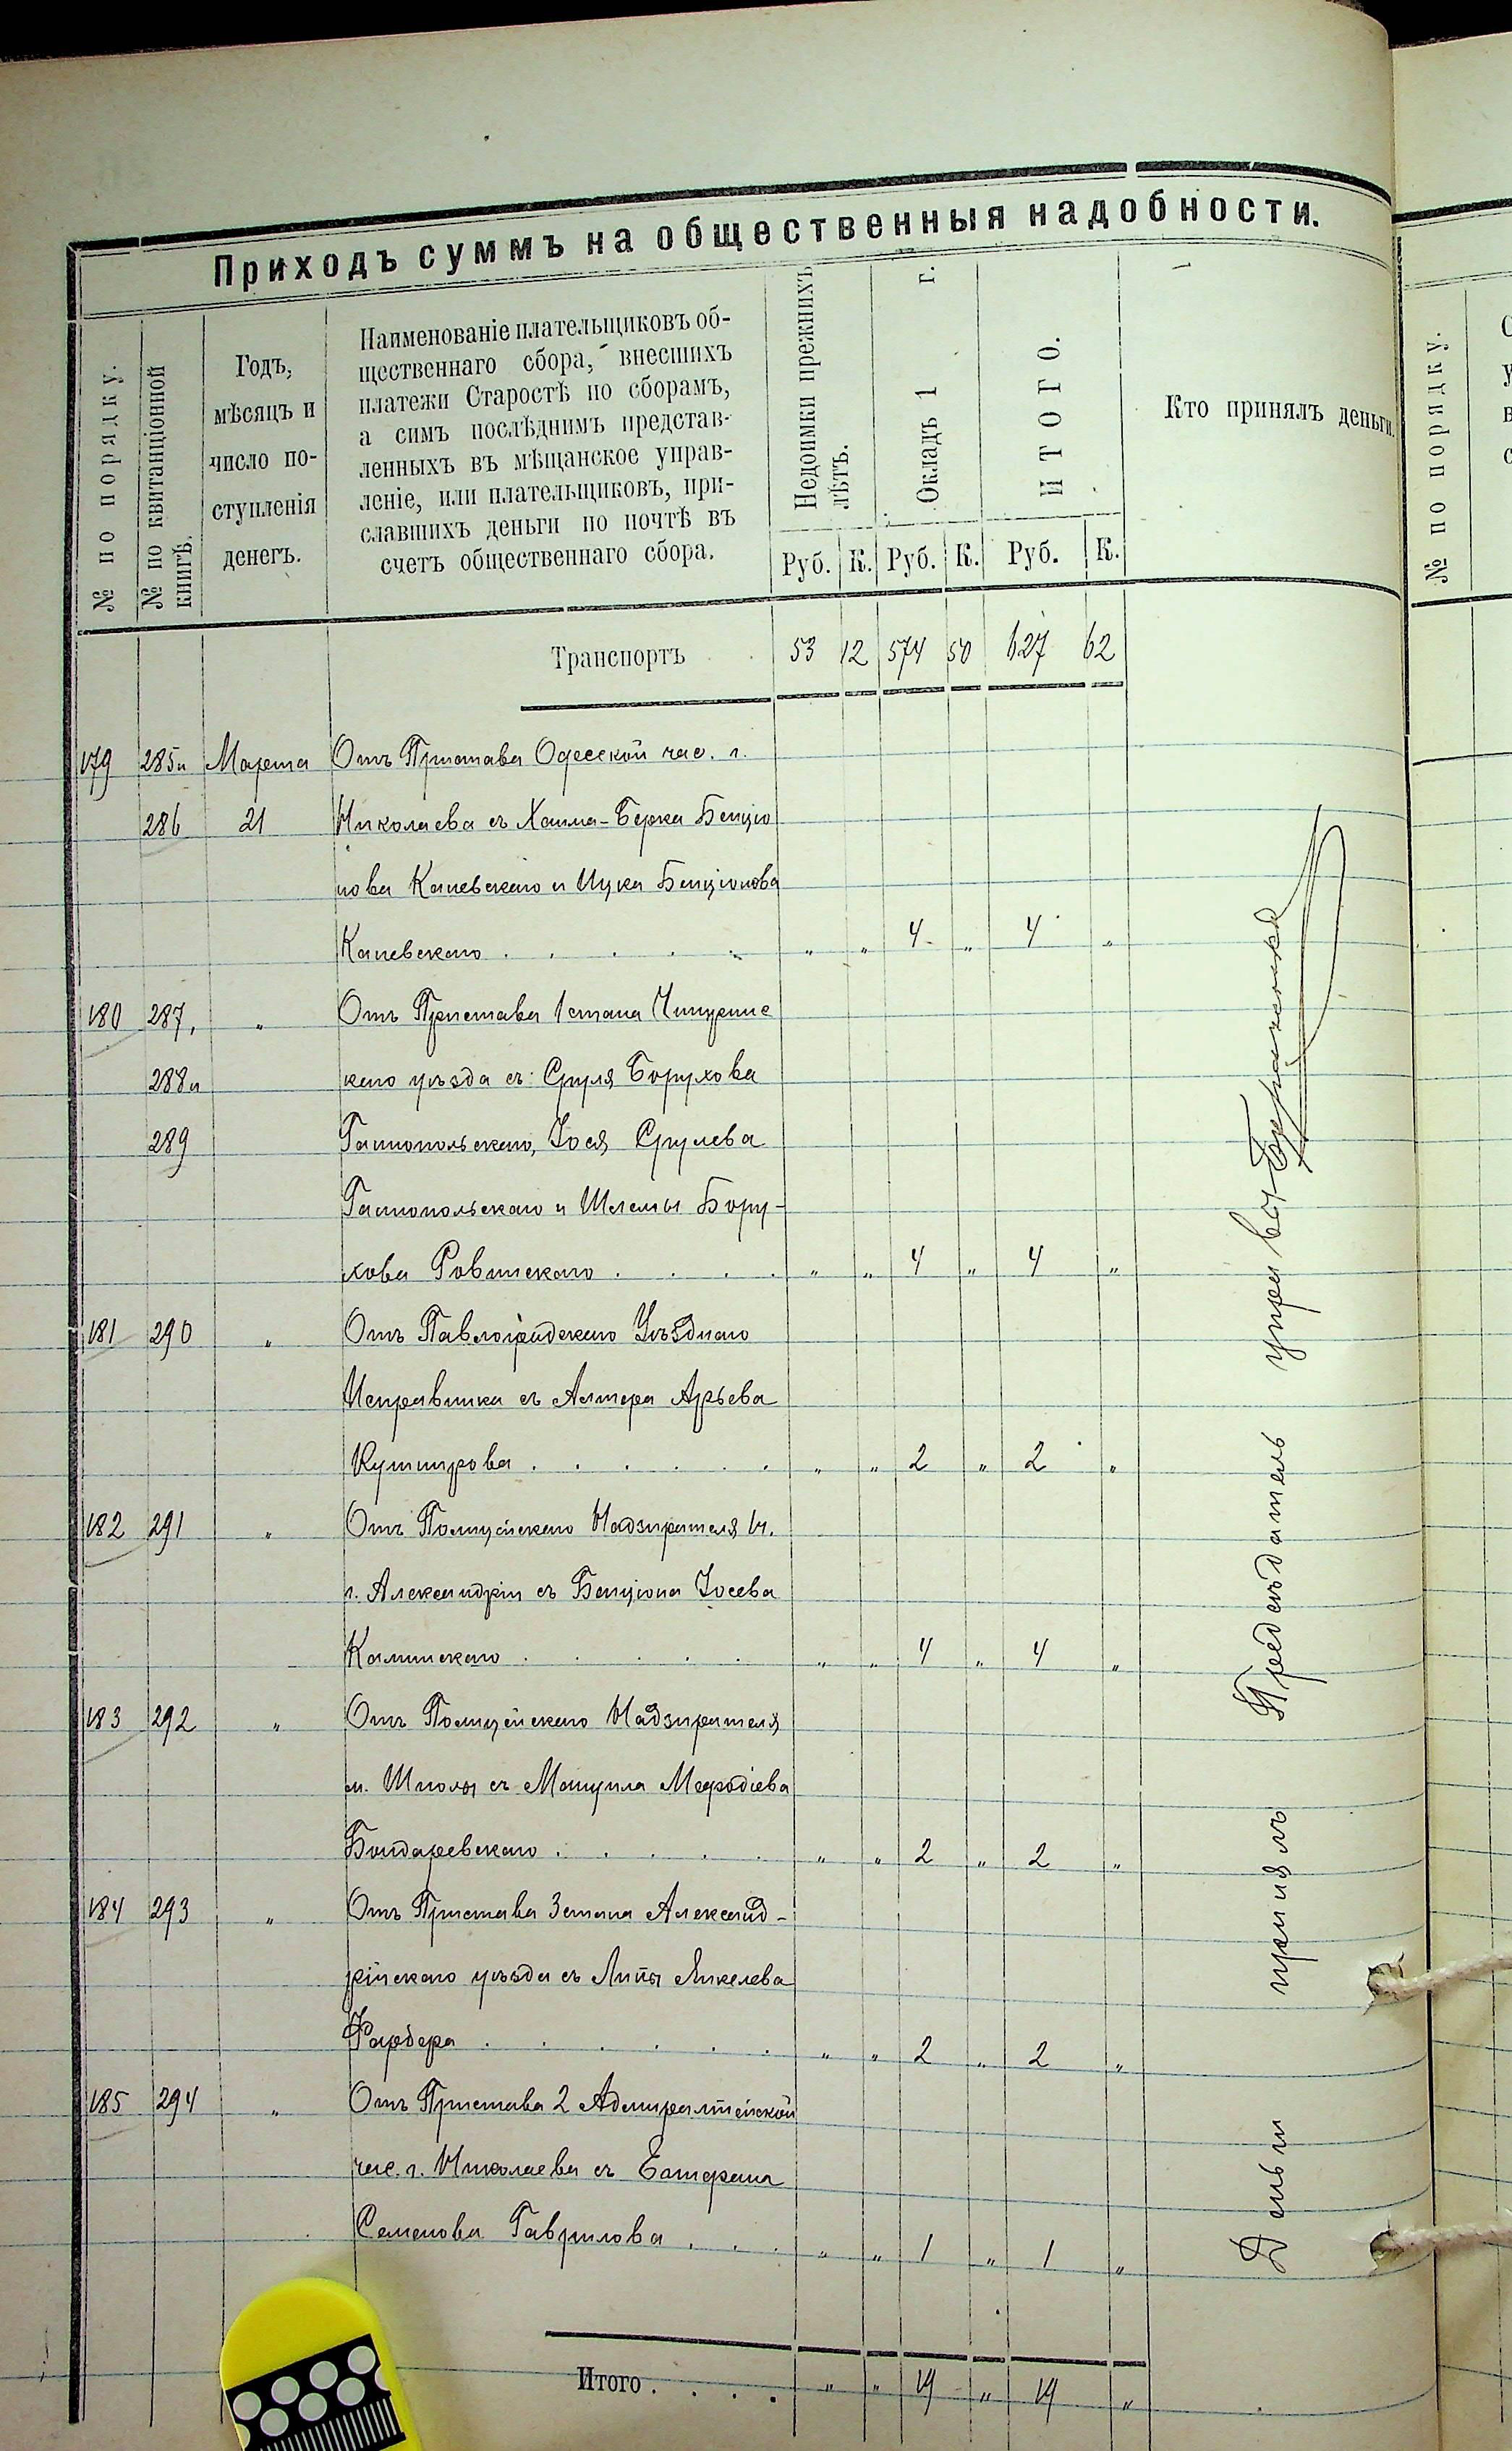 Приходъ суммъ на общественныя надобности.
№ по порядку.
№ по квитанціонной
книгѣ.
Годъ,
мѣсяцъ и
число по-
ступленія
денегъ.
Наименованіе плательщиковъ об-
щественнаго сбора, внесшихъ
платежи Старостѣ по сборамъ,
а симъ послѣднимъ представ-
ленныхъ въ мѣщанское управ-
леніе, или плательщиковъ, при-
славшихъ деньги по почтѣ въ
счетъ общественнаго сбора.
Недоимки прежнихъ
лѣтъ.
Окладъ 1 г.
ИТОГО.
Кто принялъ деньги.
Руб. К. Руб. К. Руб. К.
Транспортъ 53 12 574 50 627 62
179 285 и Марта Отъ Пристава Одесской час. г.
286 21 Николаева съ Хаима-Берка Бенціо
нова Каневскаго и Ицка Бенціонова
Каневскаго . . . . . " " 4 " 4 "
180 287, " Отъ Пристава 1 стана Чигирине
каго уѣзда съ: Сруля Борухова
288 и
289 Гаинопольскаго, Іося Срулева
Гаинопольскаго и Шлемы Бору-
хова Ровинскаго . . . . " " 4 " 4 "
181 290 " Отъ Павлоградскаго Уѣзднаго
Исправника съ Алтера Арьева
Кушнирова . . . . . . " " 2 " 2 "
182 291 " Отъ Полицейскаго Надзирателя
г. Александріи съ Бенціона Іосева
Калинскаго . . . . . " " 4 " 4 "
183 292 " Отъ Полицейскаго Надзирателя
м. Шполы съ Мануила Мефодіева
Бондаревскаго . . . . . " " 2 " 2 "
184 293 " Отъ Пристава 3 стана Александ-
рійскаго уѣзда съ Липы Янкелева
Фарбера . . . . . . " " 2 " 2 "
185 294 " Отъ Пристава 2 Адмиралтейской
час. г. Николаева съ
Семенова Гаврилова . . . " " 1 " 1 "
Итого . . . . " " 19 " 19 "
Деньги принялъ Предсѣдатель управы
№ по порядку.